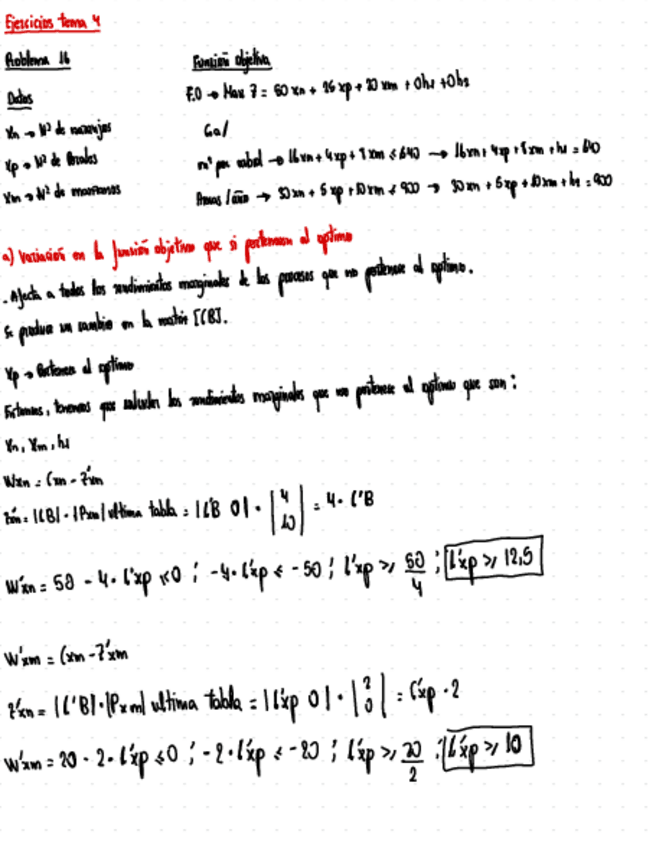 Ejercicios tema 4
Problema 16
Función objetivo
Datos
F.O → Max Z = 50 xn + 25 xp + 20 xm + 0h1 + 0h2
Xn → Nº de naranjos
S.a/
Xp → Nº de
m² por → 16xn + 4xp + 8xm ≤ 640 → 16xn + 4xp + 8xm + h1 = 640
Xm → Nº de manzanos
/año → 30xn + 5xp + 10xm ≤ 900 → 30xn + 5xp + 10xm + h2 = 900
a) Variación en la función objetivo que si pertenecen al óptimo
. Afecta a todos los rendimientos marginales de los procesos que no pertenece al óptimo.
Se produce un cambio en la matriz [CB].
Xp → Pertenece al óptimo
Entonces, tenemos que calcular los rendimientos marginales que no pertenece al óptimo que son:
Xn, Xm, h1
Wxn = Cxn - Z'xn
Z'xn = |CB| · |Pxn| ultima tabla = |C'B 0| · |4 10| = 4 · C'B
W'xn = 50 - 4 · C'xp ≤ 0 ; -4 · C'xp ≤ -50 ; C'xp ≥ 50/4 ; C'xp ≥ 12,5
W'xm = Cxm - Z'xm
Z'xn = |C'B| · |Pxm| ultima tabla = |C'xp 0| · |2 0| = C'xp · 2
W'xm = 20 - 2 · C'xp ≤ 0 ; -2 · C'xp ≤ -20 ; C'xp ≥ 20/2 ; C'xp ≥ 10